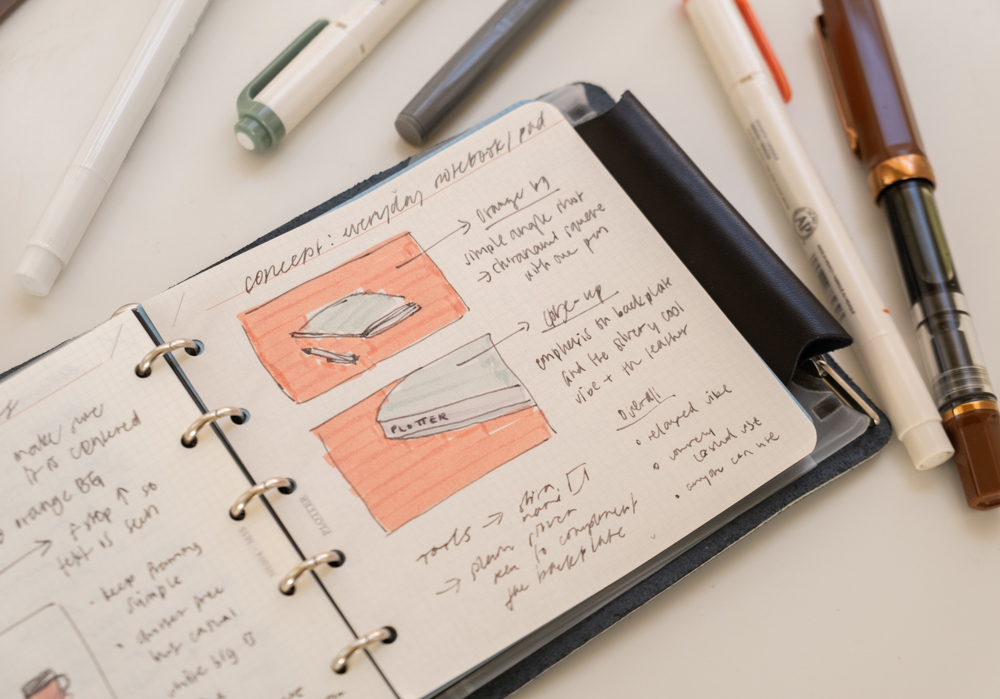 make sure
it is centered
orange BG
f-step ↑ so
text is seen
• keep framing
simple
• clutter free
but casual
white bg
concept: everyday notebook/pad
→ Orange bg
simple angle shot
→ chiranand square
with one pen
→ close-up
emphasis on backplate
and the silvery cool
vibe + the leather
PLOTTER
overall
• relaxed vibe
•
casual use
• anyone can use
Tools →
→
pen to complement
the backplate
PLOTTER